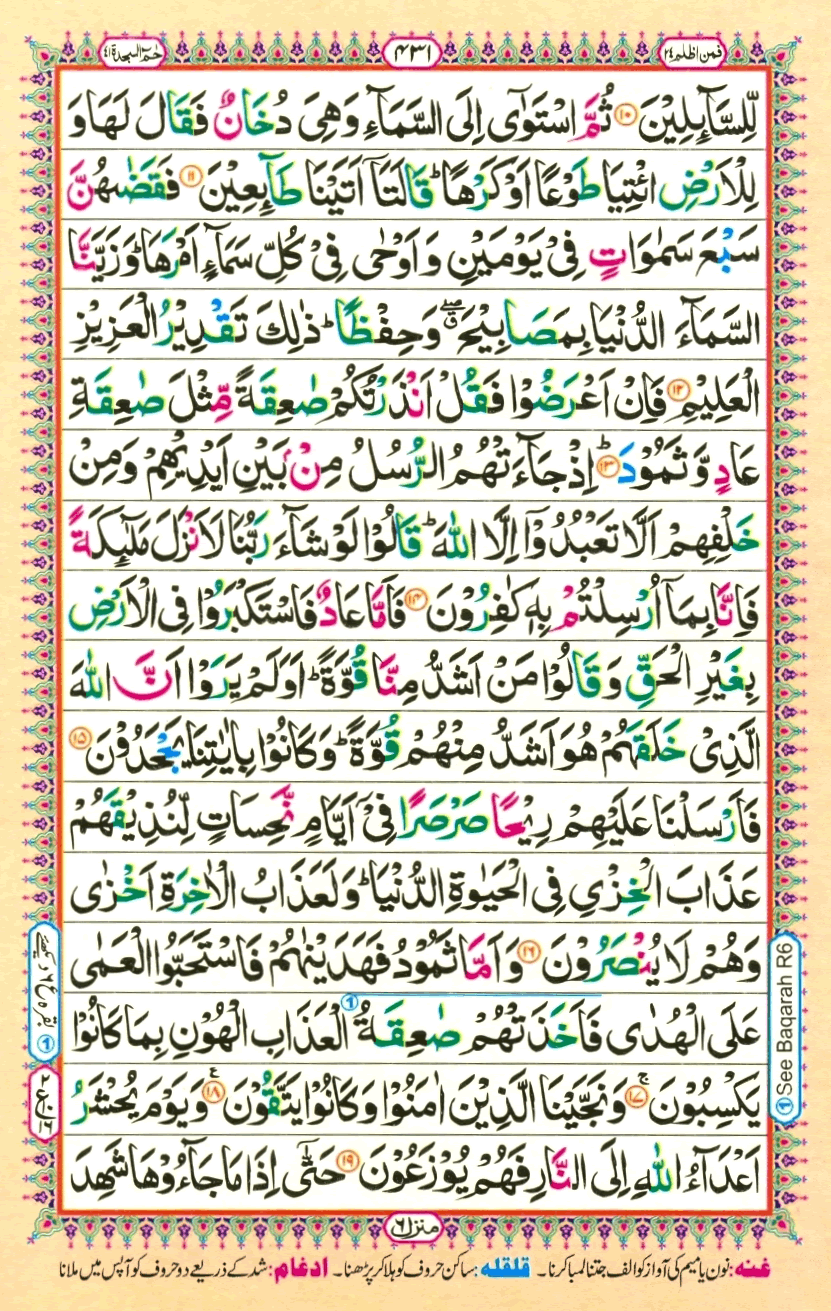 فمن اظلم ۲۴
۴۳۱
حٰمٓ السجدة ۴۱
لِّلسَّآىِٕلِیْنَ ۝۱۰ ثُمَّ اسْتَوٰۤی اِلَی السَّمَآءِ وَهِیَ دُخَانٌ فَقَالَ لَهَا وَ
لِلْاَرْضِ ائْتِیَا طَوْعًا اَوْ كَرْهًا ؕ قَالَتَاۤ اَتَیْنَا طَآىِٕعِیْنَ ۝۱۱ فَقَضٰىهُنَّ
سَبْعَ سَمٰوَاتٍ فِیْ یَوْمَیْنِ وَ اَوْحٰی فِیْ كُلِّ سَمَآءٍ اَمْرَهَا ؕ وَ زَیَّنَّا
السَّمَآءَ الدُّنْیَا بِمَصَابِیْحَ ۖۗ وَحِفْظًا ؕ ذٰلِكَ تَقْدِیْرُ الْعَزِیْزِ
الْعَلِیْمِ ۝۱۲ فَاِنْ اَعْرَضُوْا فَقُلْ اَنْذَرْتُكُمْ صٰعِقَةً مِّثْلَ صٰعِقَةِ
عَادٍ وَّ ثَمُوْدَ ۝۱۳ؕ اِذْ جَآءَتْهُمُ الرُّسُلُ مِنْۢ بَیْنِ اَیْدِیْهِمْ وَمِنْ
خَلْفِهِمْ اَلَّا تَعْبُدُوْۤا اِلَّا اللّٰهَ ؕ قَالُوْا لَوْ شَآءَ رَبُّنَا لَاَنْزَلَ مَلٰٓىِٕكَةً
فَاِنَّا بِمَاۤ اُرْسِلْتُمْ بِهٖ كٰفِرُوْنَ ۝۱۴ فَاَمَّا عَادٌ فَاسْتَكْبَرُوْا فِی الْاَرْضِ
بِغَیْرِ الْحَقِّ وَ قَالُوْا مَنْ اَشَدُّ مِنَّا قُوَّةً ؕ اَوَلَمْ یَرَوْا اَنَّ اللّٰهَ
الَّذِیْ خَلَقَهُمْ هُوَ اَشَدُّ مِنْهُمْ قُوَّةً ؕ وَكَانُوْا بِاٰیٰتِنَا یَجْحَدُوْنَ ۝۱۵
فَاَرْسَلْنَا عَلَیْهِمْ رِیْحًا صَرْصَرًا فِیْۤ اَیَّامٍ نَّحِسَاتٍ لِّنُذِیْقَهُمْ
عَذَابَ الْخِزْیِ فِی الْحَیٰوةِ الدُّنْیَا ؕ وَلَعَذَابُ الْاٰخِرَةِ اَخْزٰی
وَهُمْ لَا یُنْصَرُوْنَ ۝۱۶ وَ اَمَّا ثَمُوْدُ فَهَدَیْنٰهُمْ فَاسْتَحَبُّوا الْعَمٰی
عَلَی الْهُدٰی فَاَخَذَتْهُمْ صٰعِقَةُ ① الْعَذَابِ الْهُوْنِ بِمَا كَانُوْا
یَكْسِبُوْنَ ۝۱۷ۚ وَنَجَّیْنَا الَّذِیْنَ اٰمَنُوْا وَكَانُوْا یَتَّقُوْنَ ۝۱۸ۧ وَیَوْمَ یُحْشَرُ
اَعْدَآءُ اللّٰهِ اِلَی النَّارِ فَهُمْ یُوْزَعُوْنَ ۝۱۹ حَتّٰۤی اِذَا مَا جَآءُوْهَا شَهِدَ
① See Baqarah R6
① بقرہ ع ۶ دیکھئے
منزل ۶
غنه: نون یا میم کی آواز کو الف جتنا لمبا کرنا۔ قلقله: ساکن حروف کو ہلا کر پڑھنا۔ ادغام: شد کے ذریعے دو حروف کو آپس میں ملانا